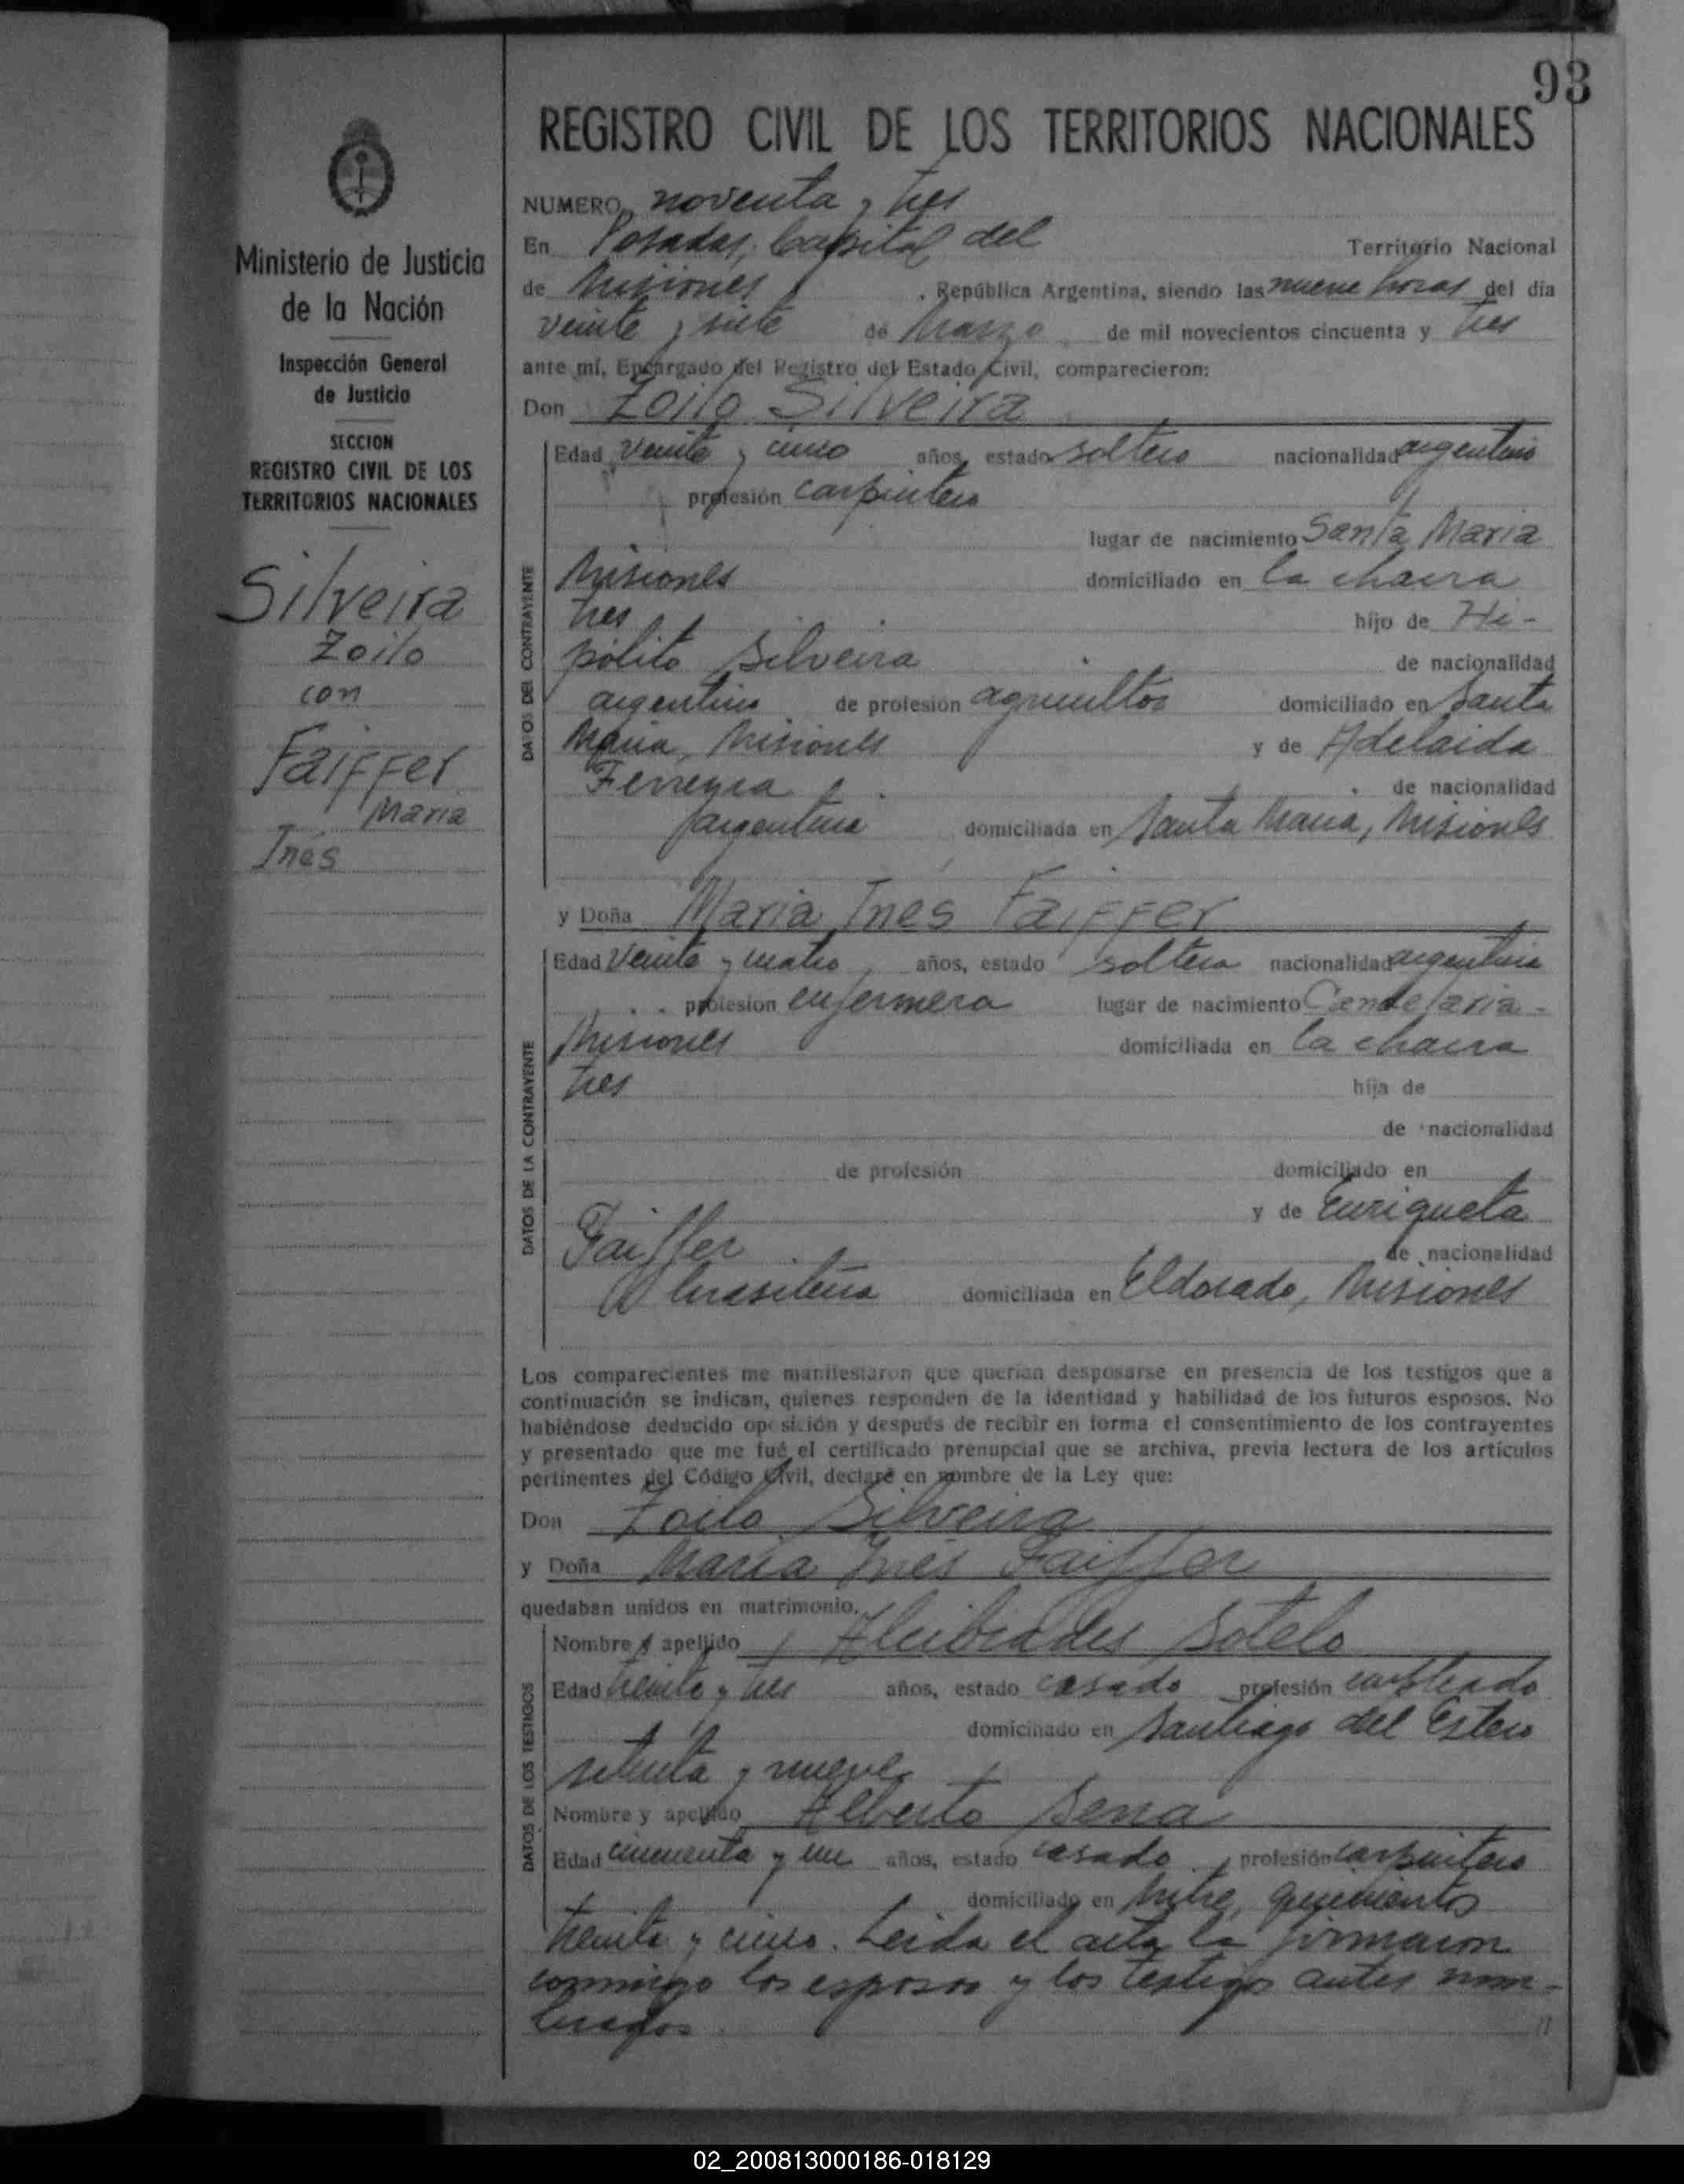 93
REGISTRO CIVIL DE LOS TERRITORIOS NACIONALES
Ministerio de Justicia
de la Nación
Inspección General
de Justicia
SECCION
REGISTRO CIVIL DE LOS
TERRITORIOS NACIONALES
Silveira
Zoilo
con
Faiffer
Maria
Inés
NUMERO noventa y tres
En Posadas, Capital del Territorio Nacional
de Misiones, República Argentina, siendo las nueve horas del día
veinte y siete de Marzo de mil novecientos cincuenta y tres
ante mí, Encargado del Registro del Estado Civil, comparecieron:
Don Zoilo Silveira
DATOS DEL CONTRAYENTE
Edad veinte y cinco años, estado soltero nacionalidad argentino
profesión carpintero
lugar de nacimiento Santa Maria
Misiones domiciliado en la chacra
tres hijo de Hi-
pólito Silveira de nacionalidad
argentino de profesión agricultor domiciliado en Santa
Maria, Misiones y de Adelaida
Ferreyra de nacionalidad
argentina domiciliada en Santa Maria, Misiones
y Doña Maria Inés Faiffer
DATOS DE LA CONTRAYENTE
Edad veinte y cuatro años, estado soltera nacionalidad argentina
profesión enfermera lugar de nacimiento Candelaria-
Misiones domiciliada en la chacra
tres hija de
de nacionalidad
de profesión domiciliado en
y de Enriqueta
Faiffer de nacionalidad
brasileña domiciliada en Eldorado, Misiones
Los comparecientes me manifestaron que querían desposarse en presencia de los testigos que a
continuación se indican, quienes responden de la identidad y habilidad de los futuros esposos. No
habiéndose deducido oposición y después de recibir en forma el consentimiento de los contrayentes
y presentado que me fué el certificado prenupcial que se archiva, previa lectura de los artículos
pertinentes del Código Civil, declaré en nombre de la Ley que:
Don Zoilo Silveira
y Doña Maria Inés Faiffer
quedaban unidos en matrimonio.
DATOS DE LOS TESTIGOS
Nombre y apellido Alcibiades Sotelo
Edad treinta y tres años, estado casado profesión empleado
domiciliado en Santiago del Estero
setenta y nueve
Nombre y apellido Alberto Sena
Edad cincuenta y un años, estado casado profesión carpintero
domiciliado en Mitre, quinientos
treinta y cinco. Leida el acta la firmaron
conmigo los esposos y los testigos antes nom-
brados
02_200813000186-018129